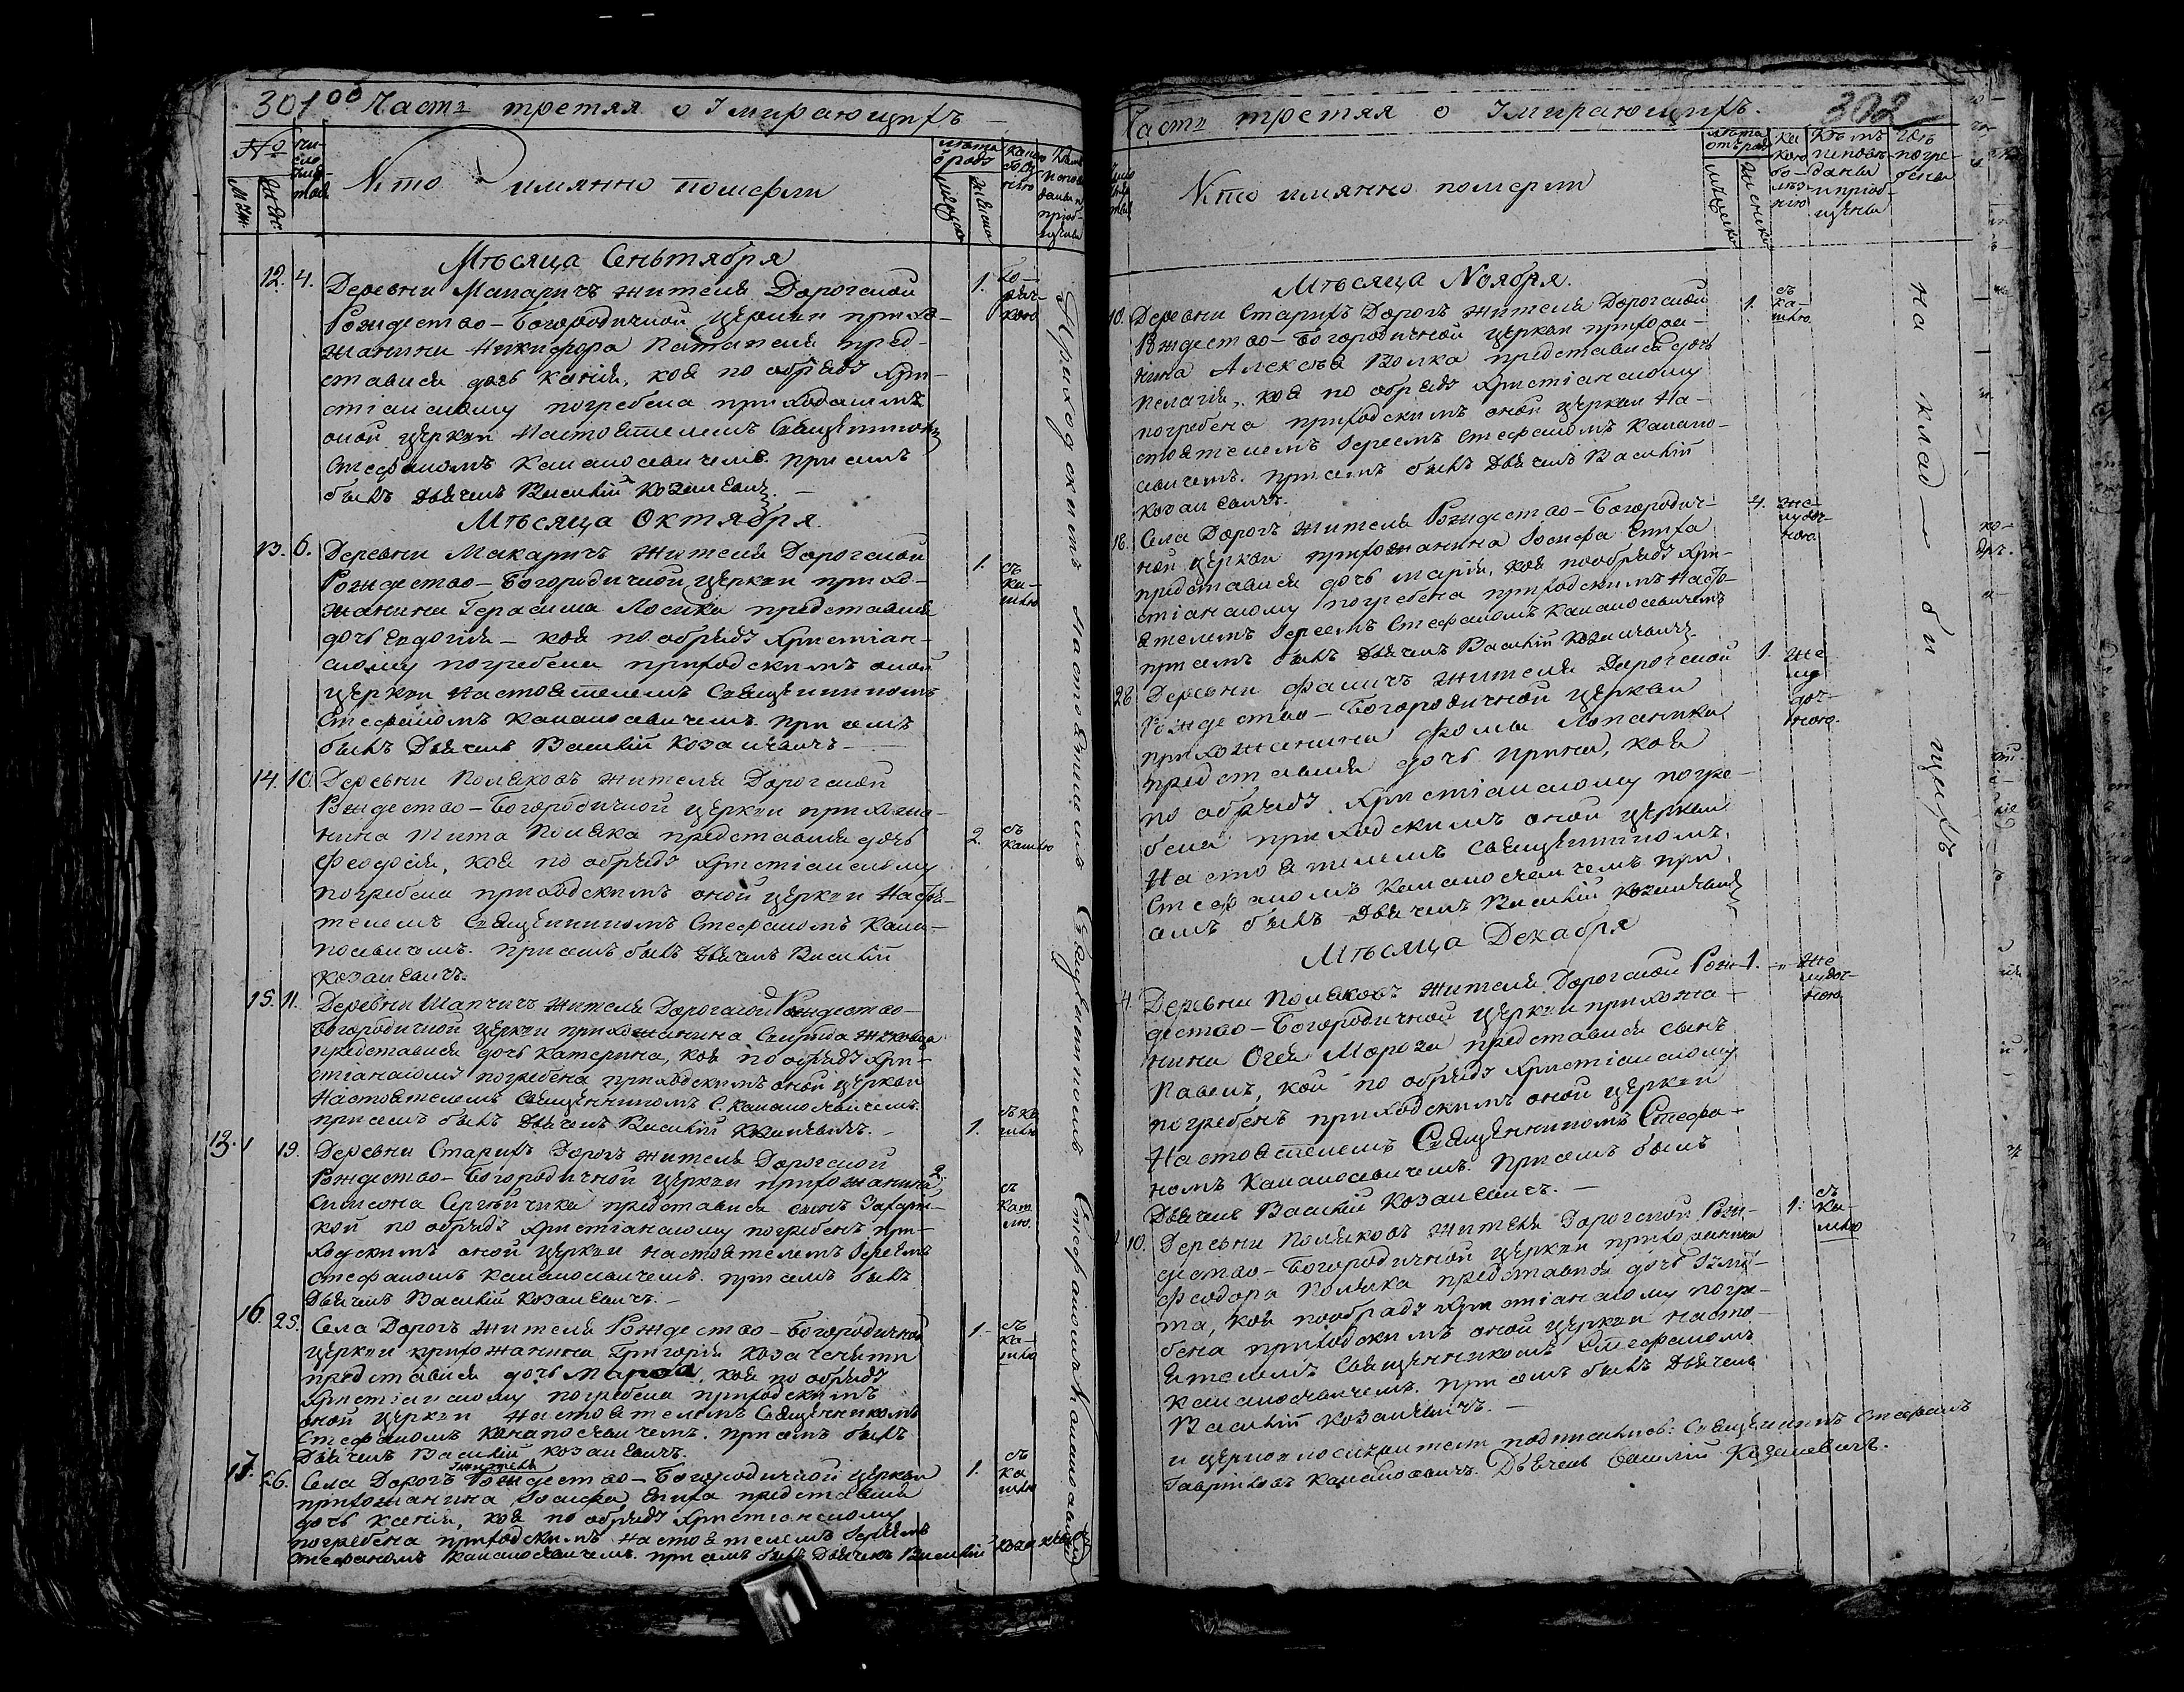 301
Часть третяя о Умирающихъ
№
Кто имянно померли
Мѣсяца Сеньтября
12. 4. Деревни Макаричъ жителя Дорогской 1.
Рождество-Богородичной церкви прихо-
жанина Никифора Патапеня пред-
ставися дочь Ксенія, коя по обряду Хри-
стіанскому погребена приходскимъ
оной церкви Настоятелемъ Священникомъ
Стефаномъ Канапосевичемъ. При семъ
былъ Дьячекъ Василій Козакевичъ.
Мѣсяца Октября.
13. 6. Деревни Макаричъ жителя Дорогской 1. съ
Рождество-Богородичной церкви прихо- ка-
жанина Герасима Лосика представися шлю
дочь Евдокія - коя по обряду Христіан-
скому погребена приходскимъ оной
церкви Настоятелемъ Священникомъ
Стефаномъ Канапосевичемъ. При семъ
былъ Дьячекъ Василій Козакевичъ
14. 10. Деревни Поляковъ жителя Дорогской
Рождество-Богородичной церкви прихожа-
нина Тита Поляка представися дочь 2. съ
Феодосія, коя по обряду Христіанскому кашлю
погребена приходскимъ оной церкви Настоя-
телемъ Священникомъ Стефаномъ Кана-
посевичемъ. При семъ былъ Дьячекъ Василій
Козакевичъ.
15. 11. Деревни Шапчичъ жителя Дорогской Рождество-
Богородичной церкви прихожанина
представися дочь Катерина, коя по обряду Хри-
стіанскому погребена приходскимъ оной церкви
Настоятелемъ Священникомъ С. Канапосевичемъ.
При семъ былъ Дьячекъ Василій Козакевичъ. 1. съ ка-
шлю
13. 19. Деревни Старихъ Дорогъ жителя Дорогской
Рождество-Богородичной церкви прихожанина 2.
Симеона Сергѣйчика представися сынъ Захарій съ
кой по обряду Христіанскому погребенъ при- каш
ходскимъ оной церкви настоятелемъ Іереемъ лю.
Стефаномъ Канапосевичемъ. При семъ былъ
Дьячекъ Василій Козакевичъ.
16. 25. Села Дорогъ жителя Рождество-Богородичной 1. съ
церкви прихожанина Григорія ка-
представися дочь коя по обряду шлю
Христіанскому погребена приходскимъ
оной церкви Настоятелемъ Священникомъ
Стефаномъ Канапосевичемъ. При семъ былъ
Дьячекъ Василій Козакевичъ.
17. 26. Села Дорогъ жителя Рождество-Богородичной церкви 1. съ
прихожанина Іосифа Епиха представися ка
дочь Ксенія, коя по обряду Христіанскому шлю
погребена приходскимъ Настоятелемъ Іереемъ
Стефаномъ Канапосевичемъ. При семъ былъ Дьячекъ Василій Козакевичъ
Приходскимъ Настоятелемъ Священникомъ Стефаномъ Канапосевичемъ
302
Часть третяя о Умирающихъ.
Кто имянно померли
Мѣсяца Ноября.
10. Деревни Старихъ Дорогъ жителя Дорогской 1. съ
Рождество-Богородичной церкви прихожа- ка-
нина Алексѣя Волка представися дочь шлю
Пелагія, коя по обряду Христіанскому
погребена приходскимъ оной церкви На-
стоятелемъ Іереемъ Стефаномъ Канапо-
севичемъ. При семъ былъ Дьячекъ Василій
Козакевичъ.
18. Села Дорогъ жителя Рождество-Богородич- 4. же-
ной церкви прихожанина Іосифа Епиха лудоч-
представися дочь Марія, коя по обряду Хри- ною
стіанскому погребена приходскимъ Насто-
ятелемъ Іереемъ Стефаномъ Канапосевичемъ
при семъ былъ Дьячекъ Василій Козакевичъ
28. Деревни Фаличъ жителя Дорогской 1. же
Рождество-Богородичной церкви лу
прихожанина Фомы Лопатика доч-
представися дочь Ирина, коя ною.
по обряду Христіанскому погре-
бена приходскимъ оной церкви
Настоятелемъ Священникомъ
Стефаномъ Канапосевичемъ при
семъ былъ Дьячекъ Василій Козакевичъ
Мѣсяца Декабря
4. Деревни Поляковъ жителя Дорогской Рож- 1. же
дество-Богородичной церкви прихожа- лудоч-
нина Мороза представися сынъ ною
Павелъ, кой по обряду Христіанскому
погребенъ приходскимъ оной церкви
Настоятелемъ Священникомъ Стефа-
номъ Канапосевичемъ. При семъ былъ
Дьячекъ Василій Козакевичъ.
10. Деревни Поляковъ жителя Дорогской Рож- 1. съ
дество-Богородичной церкви прихожанина ка-
Феодора Поляка представися дочь Улит- шлю
та, коя по обряду Христіанскому погре-
бена приходскимъ оной церкви насто-
ятелемъ Священникомъ Стефаномъ
Канапосевичемъ. При семъ былъ Дьячекъ
Василій Козакевичъ.
Священникъ Стефанъ
Гавриловъ Канапосевичъ. Дьячекъ Василій Козакевичъ.
На клад-бищѣ